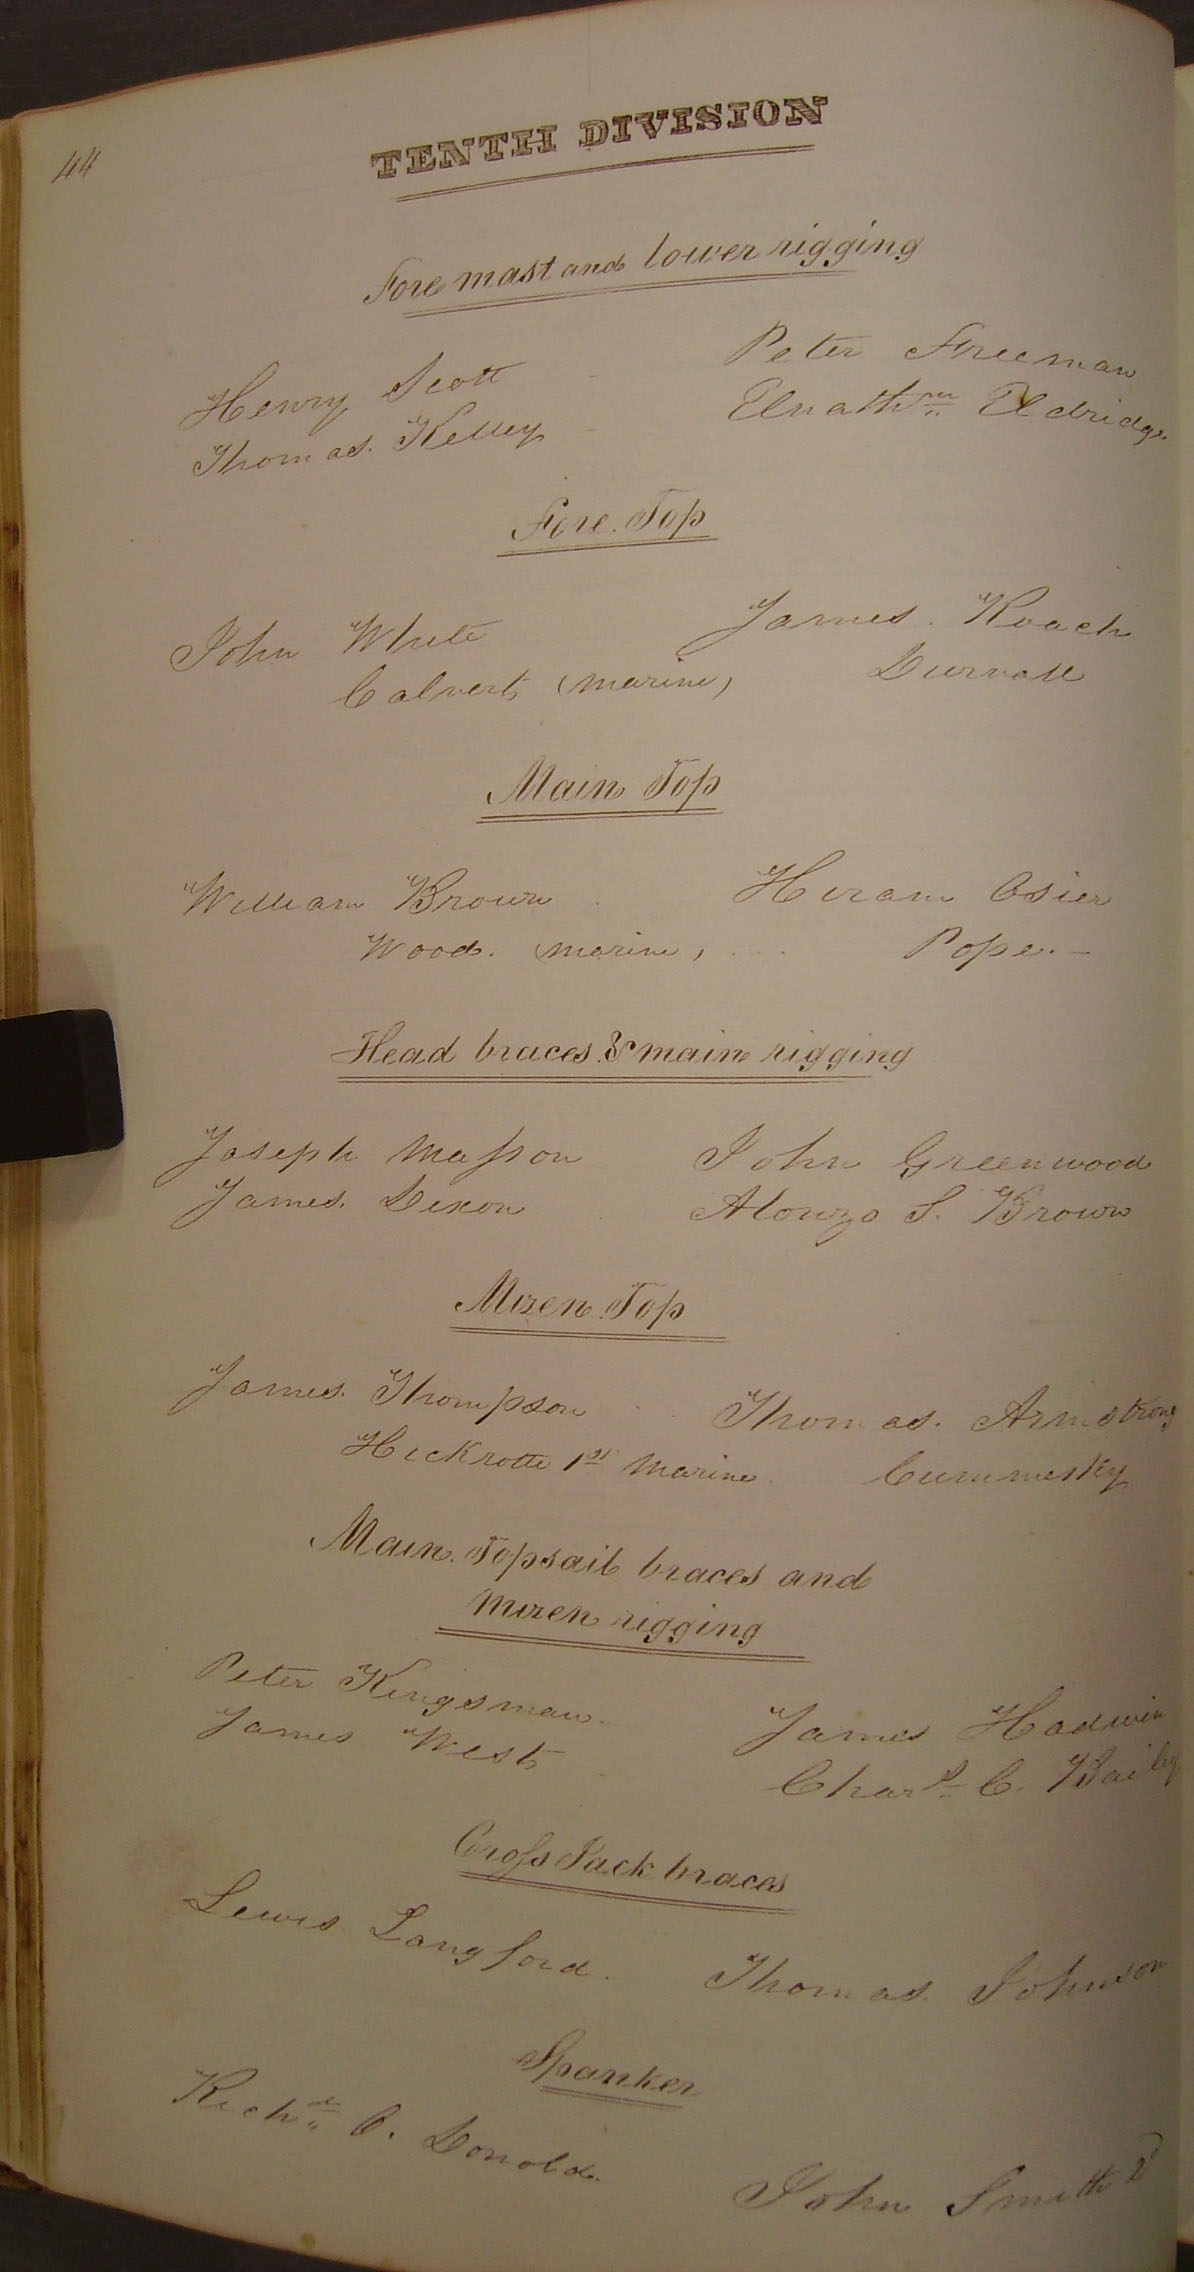 44
TENTH DIVISION
Fore mast and lower rigging
Henry Scott Peter Freeman
Thomas. Kelley Elnathn Eldridge.
Fore. Top
John White James. Roach
Calvert (marine) Durvall
Main Top
William Brown Hiram Osier
Wood. (marine) Pope. -
Head braces & main rigging
Joseph Masson John Greenwood
James. Dixon Alonzo S. Brown
Mizen Top
James. Thompson Thomas. Armstrong
Hickrotte 1st Marine Cummesky
Main. Topsail braces and
mizen rigging
Peter Kingsman. James Hadwin
James West Chars C. Bailey
Cross Jack braces
Lewis Langford. Thomas. Johnson
Spanker
Richd C. Donold. John Smith 2d